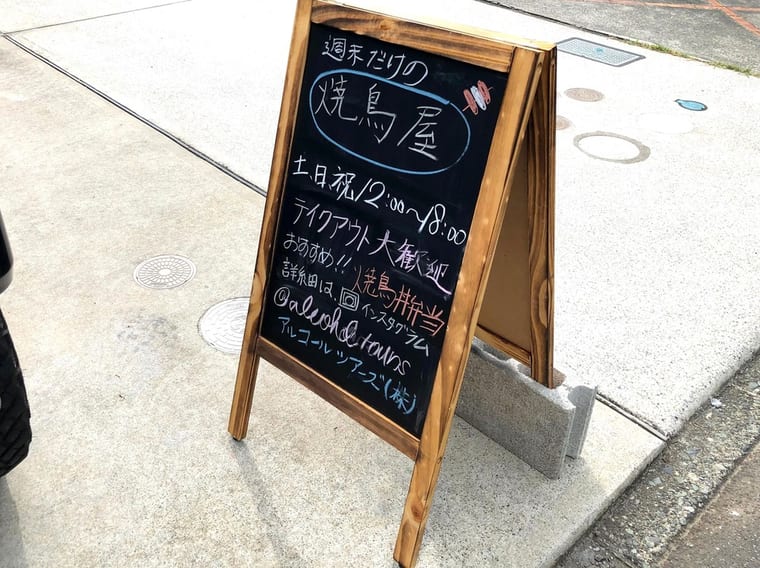 週末だけの
焼鳥屋
土、日、祝12:00〜18:00
テイクアウト大歓迎
おすすめ!!焼鳥丼弁当
詳細は、インスタグラム
@alcohol.tours
アルコールツアーズ(株)